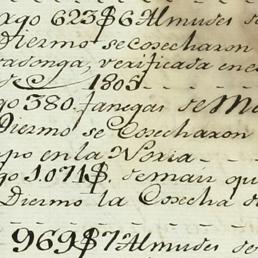 ago 623$6 Almudes de
Diermo se cosecharon
radonga, verificada en es
de 1805
go 380. fanegas de M
Diermo se Cosecharon
po en la Noria
go 1.071$. de mau qu
Diermo la Cosecha de
969$7 Almudes de